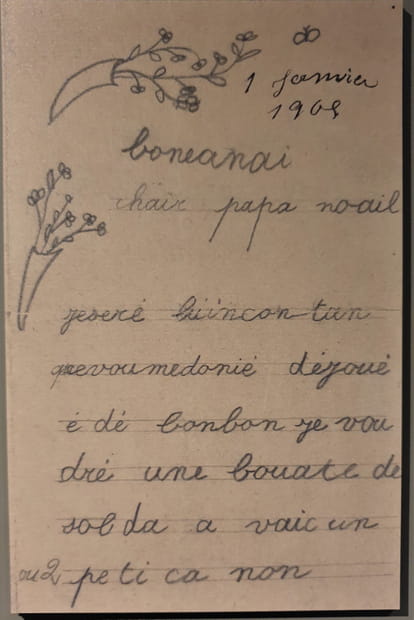 1 Janvier
1908
boneanai
chair papa no-ail
jeseré biincon-tan
quevoumedonié déjoué
é dé bonbon je vou
dré une bouate de
solda a vaic un
ou 2 petica non